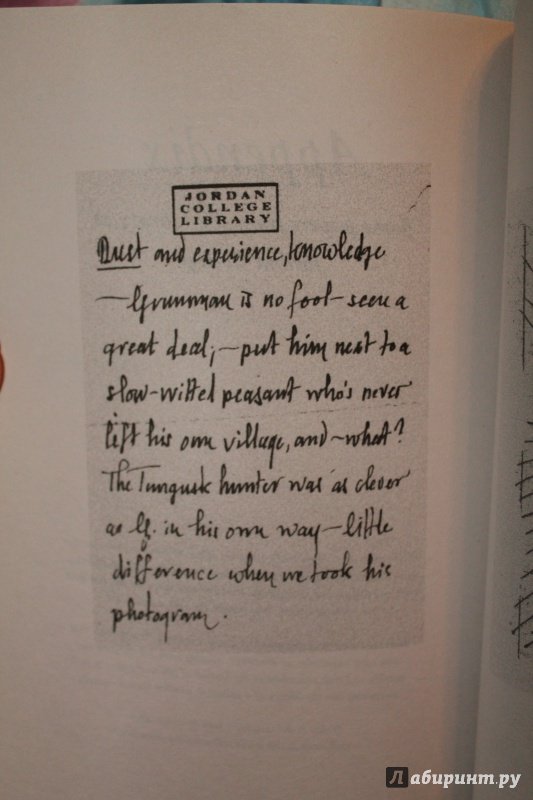 Appendix
JORDAN
COLLEGE
LIBRARY
Dust and experience, knowledge
—Grumman is no fool – seen a
great deal; – put him next to a
slow-witted peasant who's never
left his own village, and – what?
The Tungusk hunter was as clever
as G. in his own way – little
difference when we took his
photogram.
Лабиринт.ру